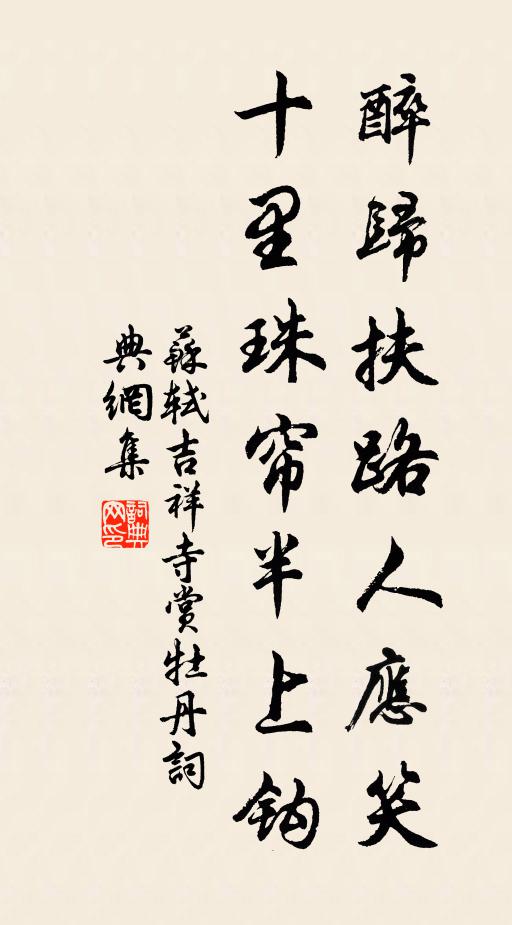 醉歸扶路人應笑
十里珠帘半上鈎
蘇軾吉祥寺賞牡丹詞
典網集
詞典网印